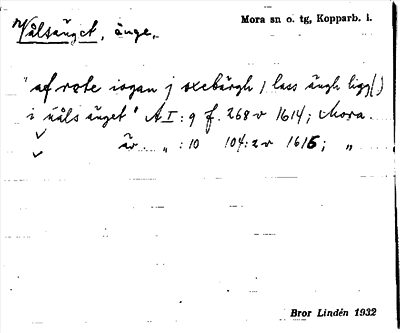 Vålsänget, änge.
Mora sn o. tg, Kopparb. l.
"af rote isgan j oxebärgh 1 lass ängh ligg()
i våls änget" A I: 9 f. 268 v 1614; Mora.
är „ : 10 104:2 v 1615; „
Bror Lindén 1932